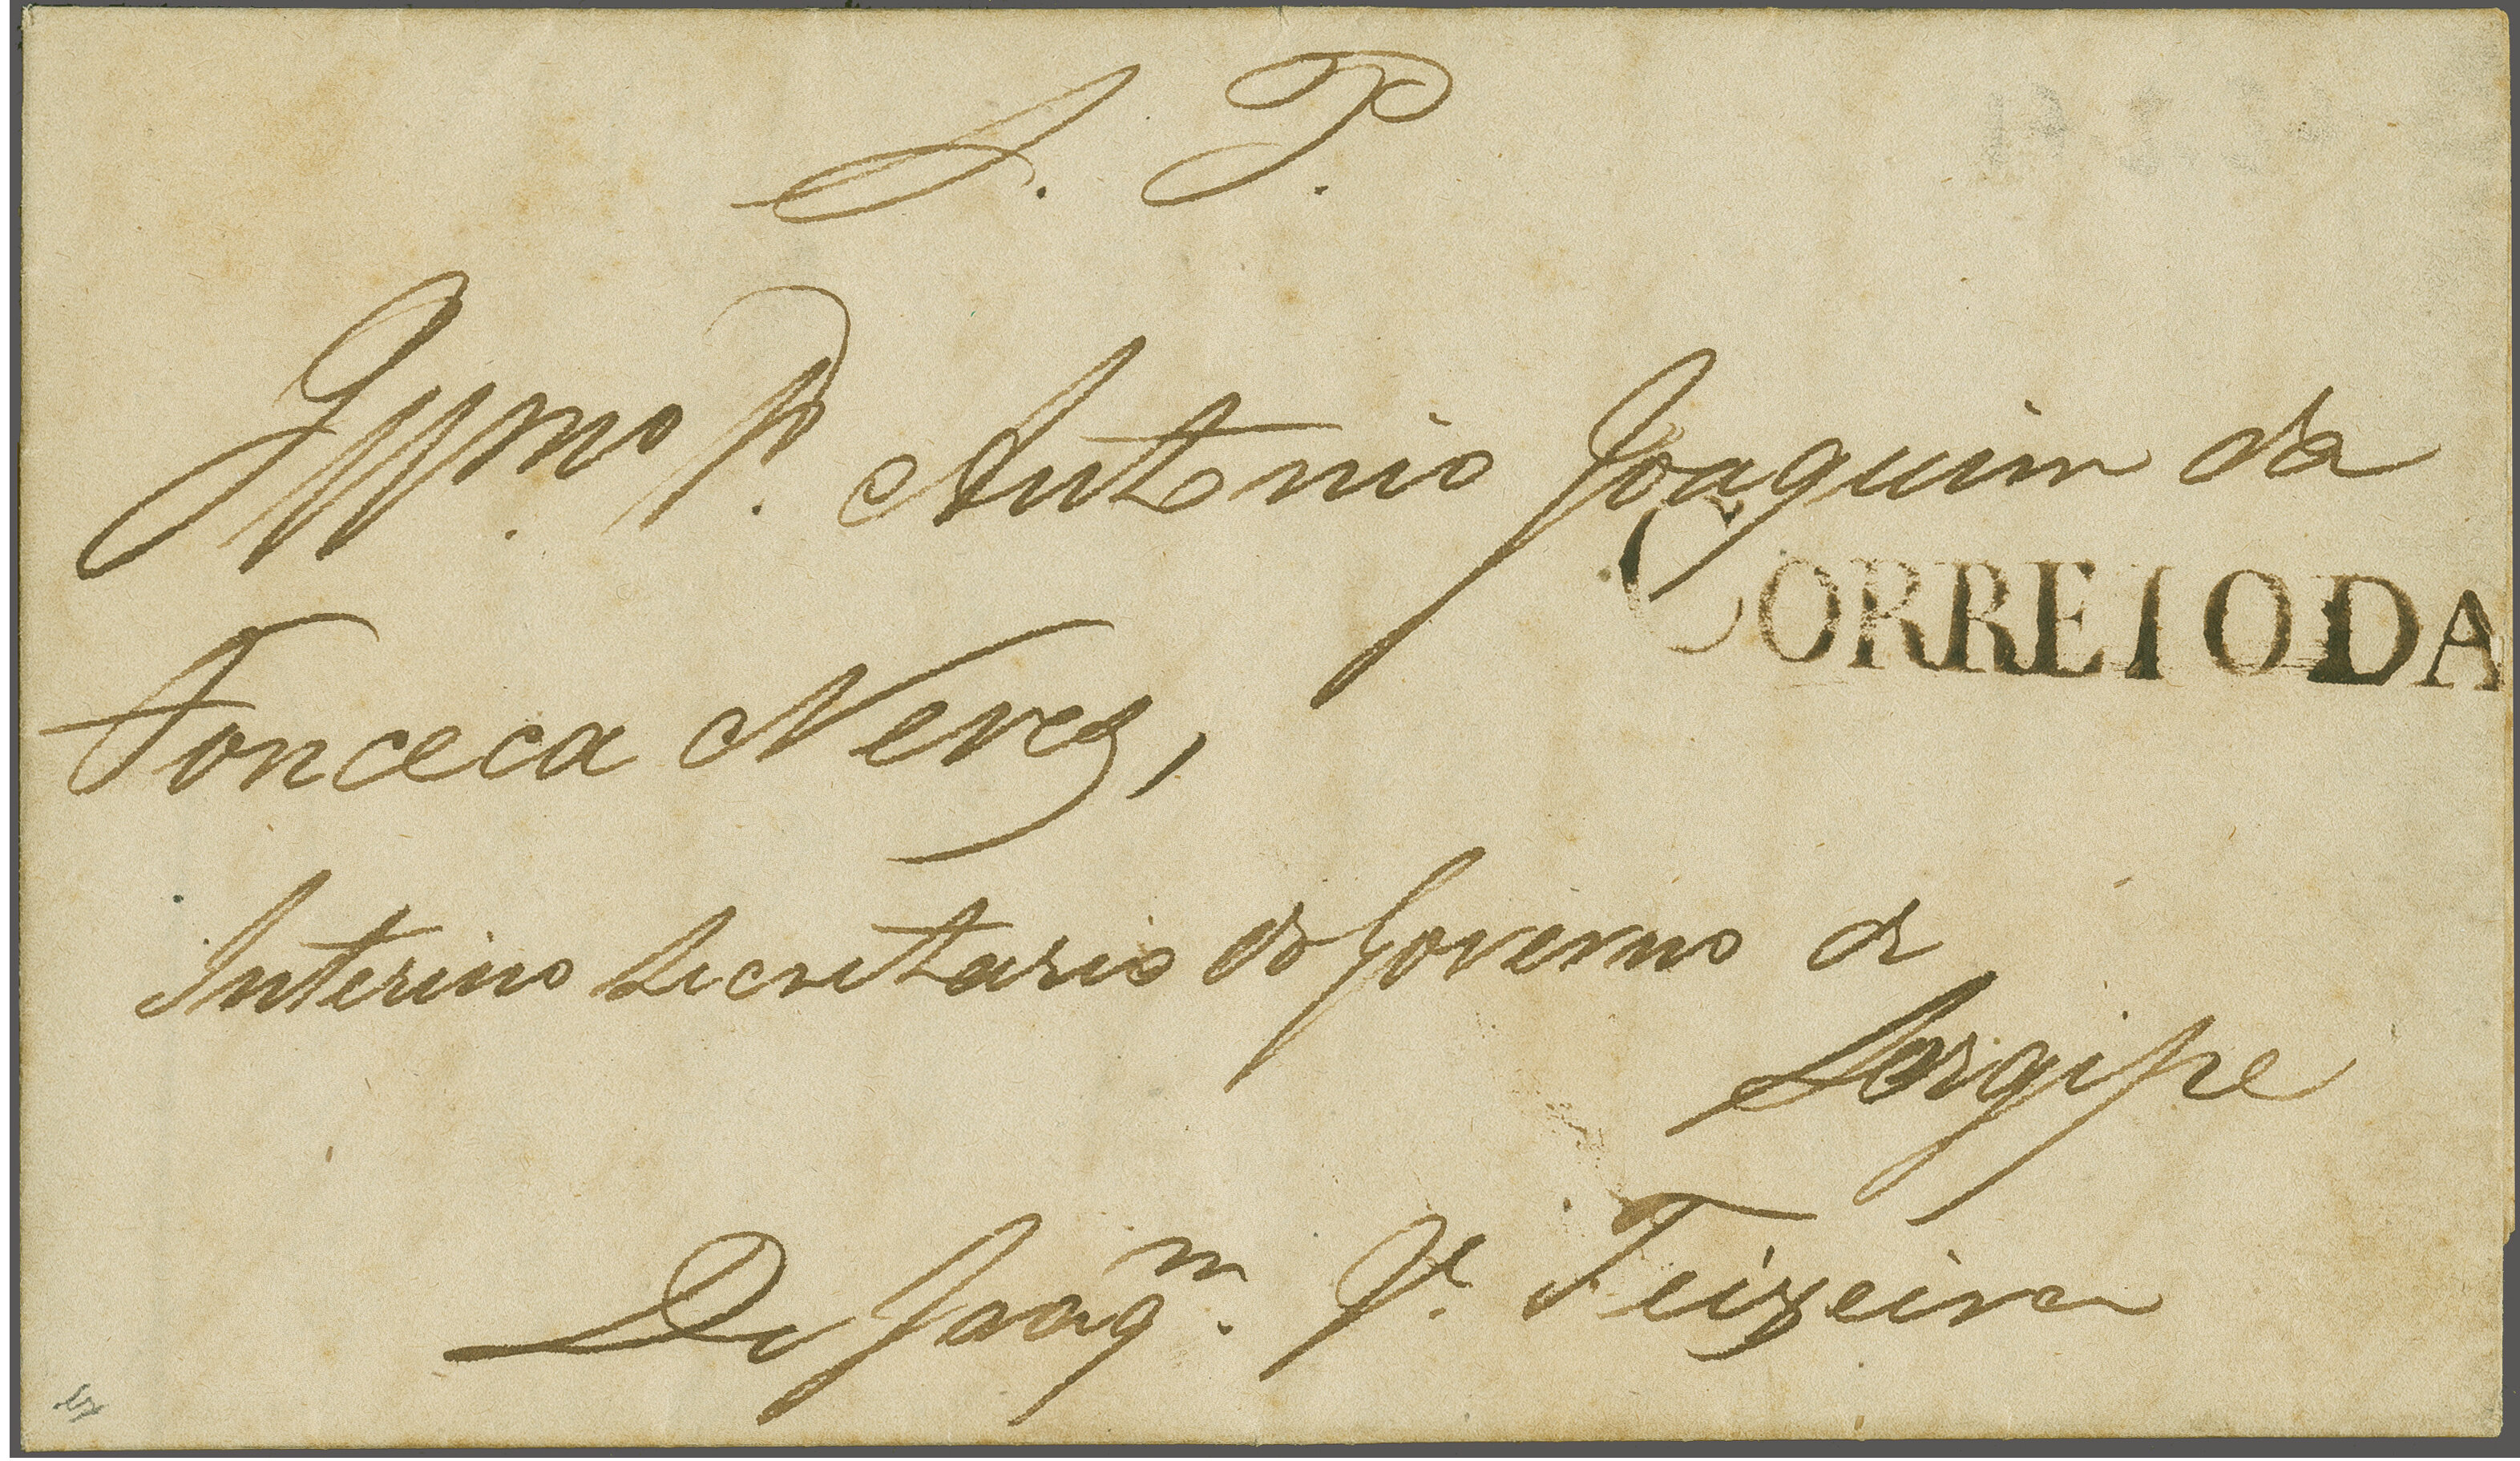 S. P.
Illmo. Sr. Antonio Joaquim da
CORREIO DA
Fonceca Neves,
Interino Secretario do Governo de
Sergipe
Do Joaqm. Je. Teixeira